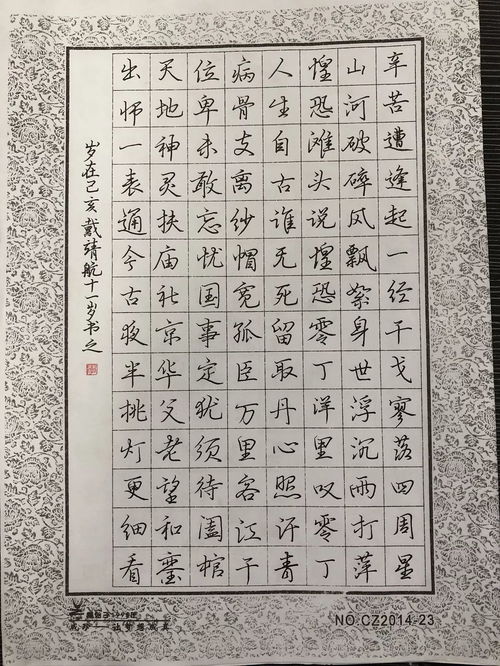 辛苦遭逢起一经干戈寥落四周星
山河破碎风飘絮身世浮沉雨打萍
惶恐滩头说惶恐零丁洋里叹零丁
人生自古谁无死留取丹心照汗青
病骨支离纱帽宽孤臣万里客江干
位卑未敢忘忧国事定犹须待阖棺
天地神灵扶庙社京华父老望和銮
出师一表通今古夜半挑灯更细看
岁在己亥戴靖航十一岁书之
NO.CZ2014-23